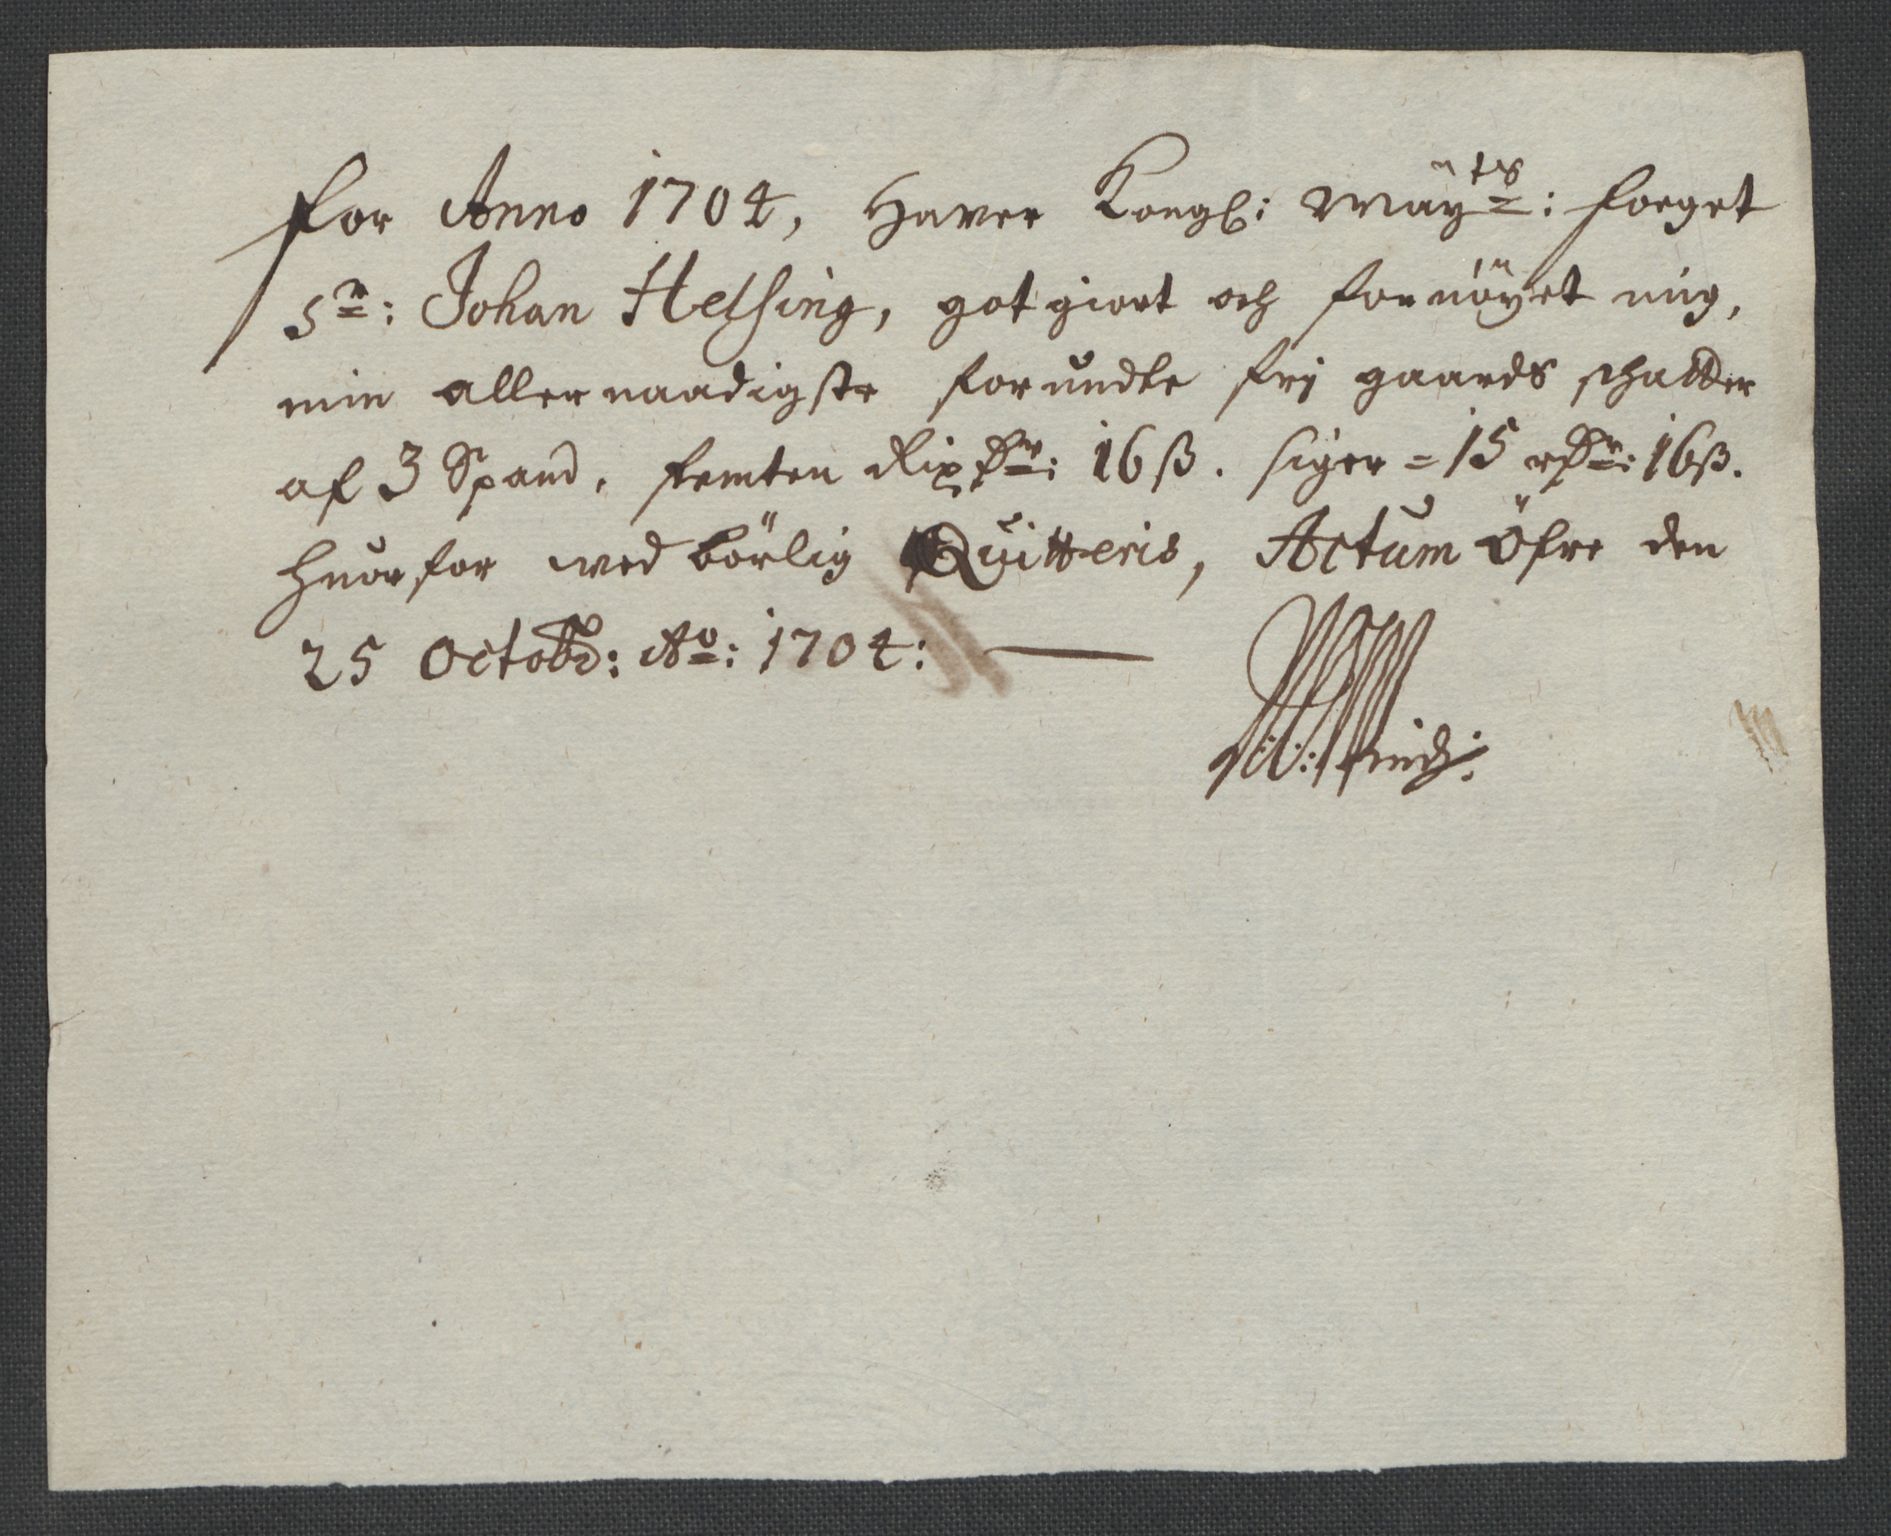 for Anno 1704, Haver Kongl: Mäy:ts: foeget
Sr: Johan Helsing, gotgiort och fornöyet mig,
min allernaadigste forundte frj gaards schatter
af 3 Spand, femten Rixdr: 16 ß. siger = 15 rdr: 16 ß.
huorfor wed börlig Quitteris, Actum Öfre den
25 Octobr: Ao: 1704: